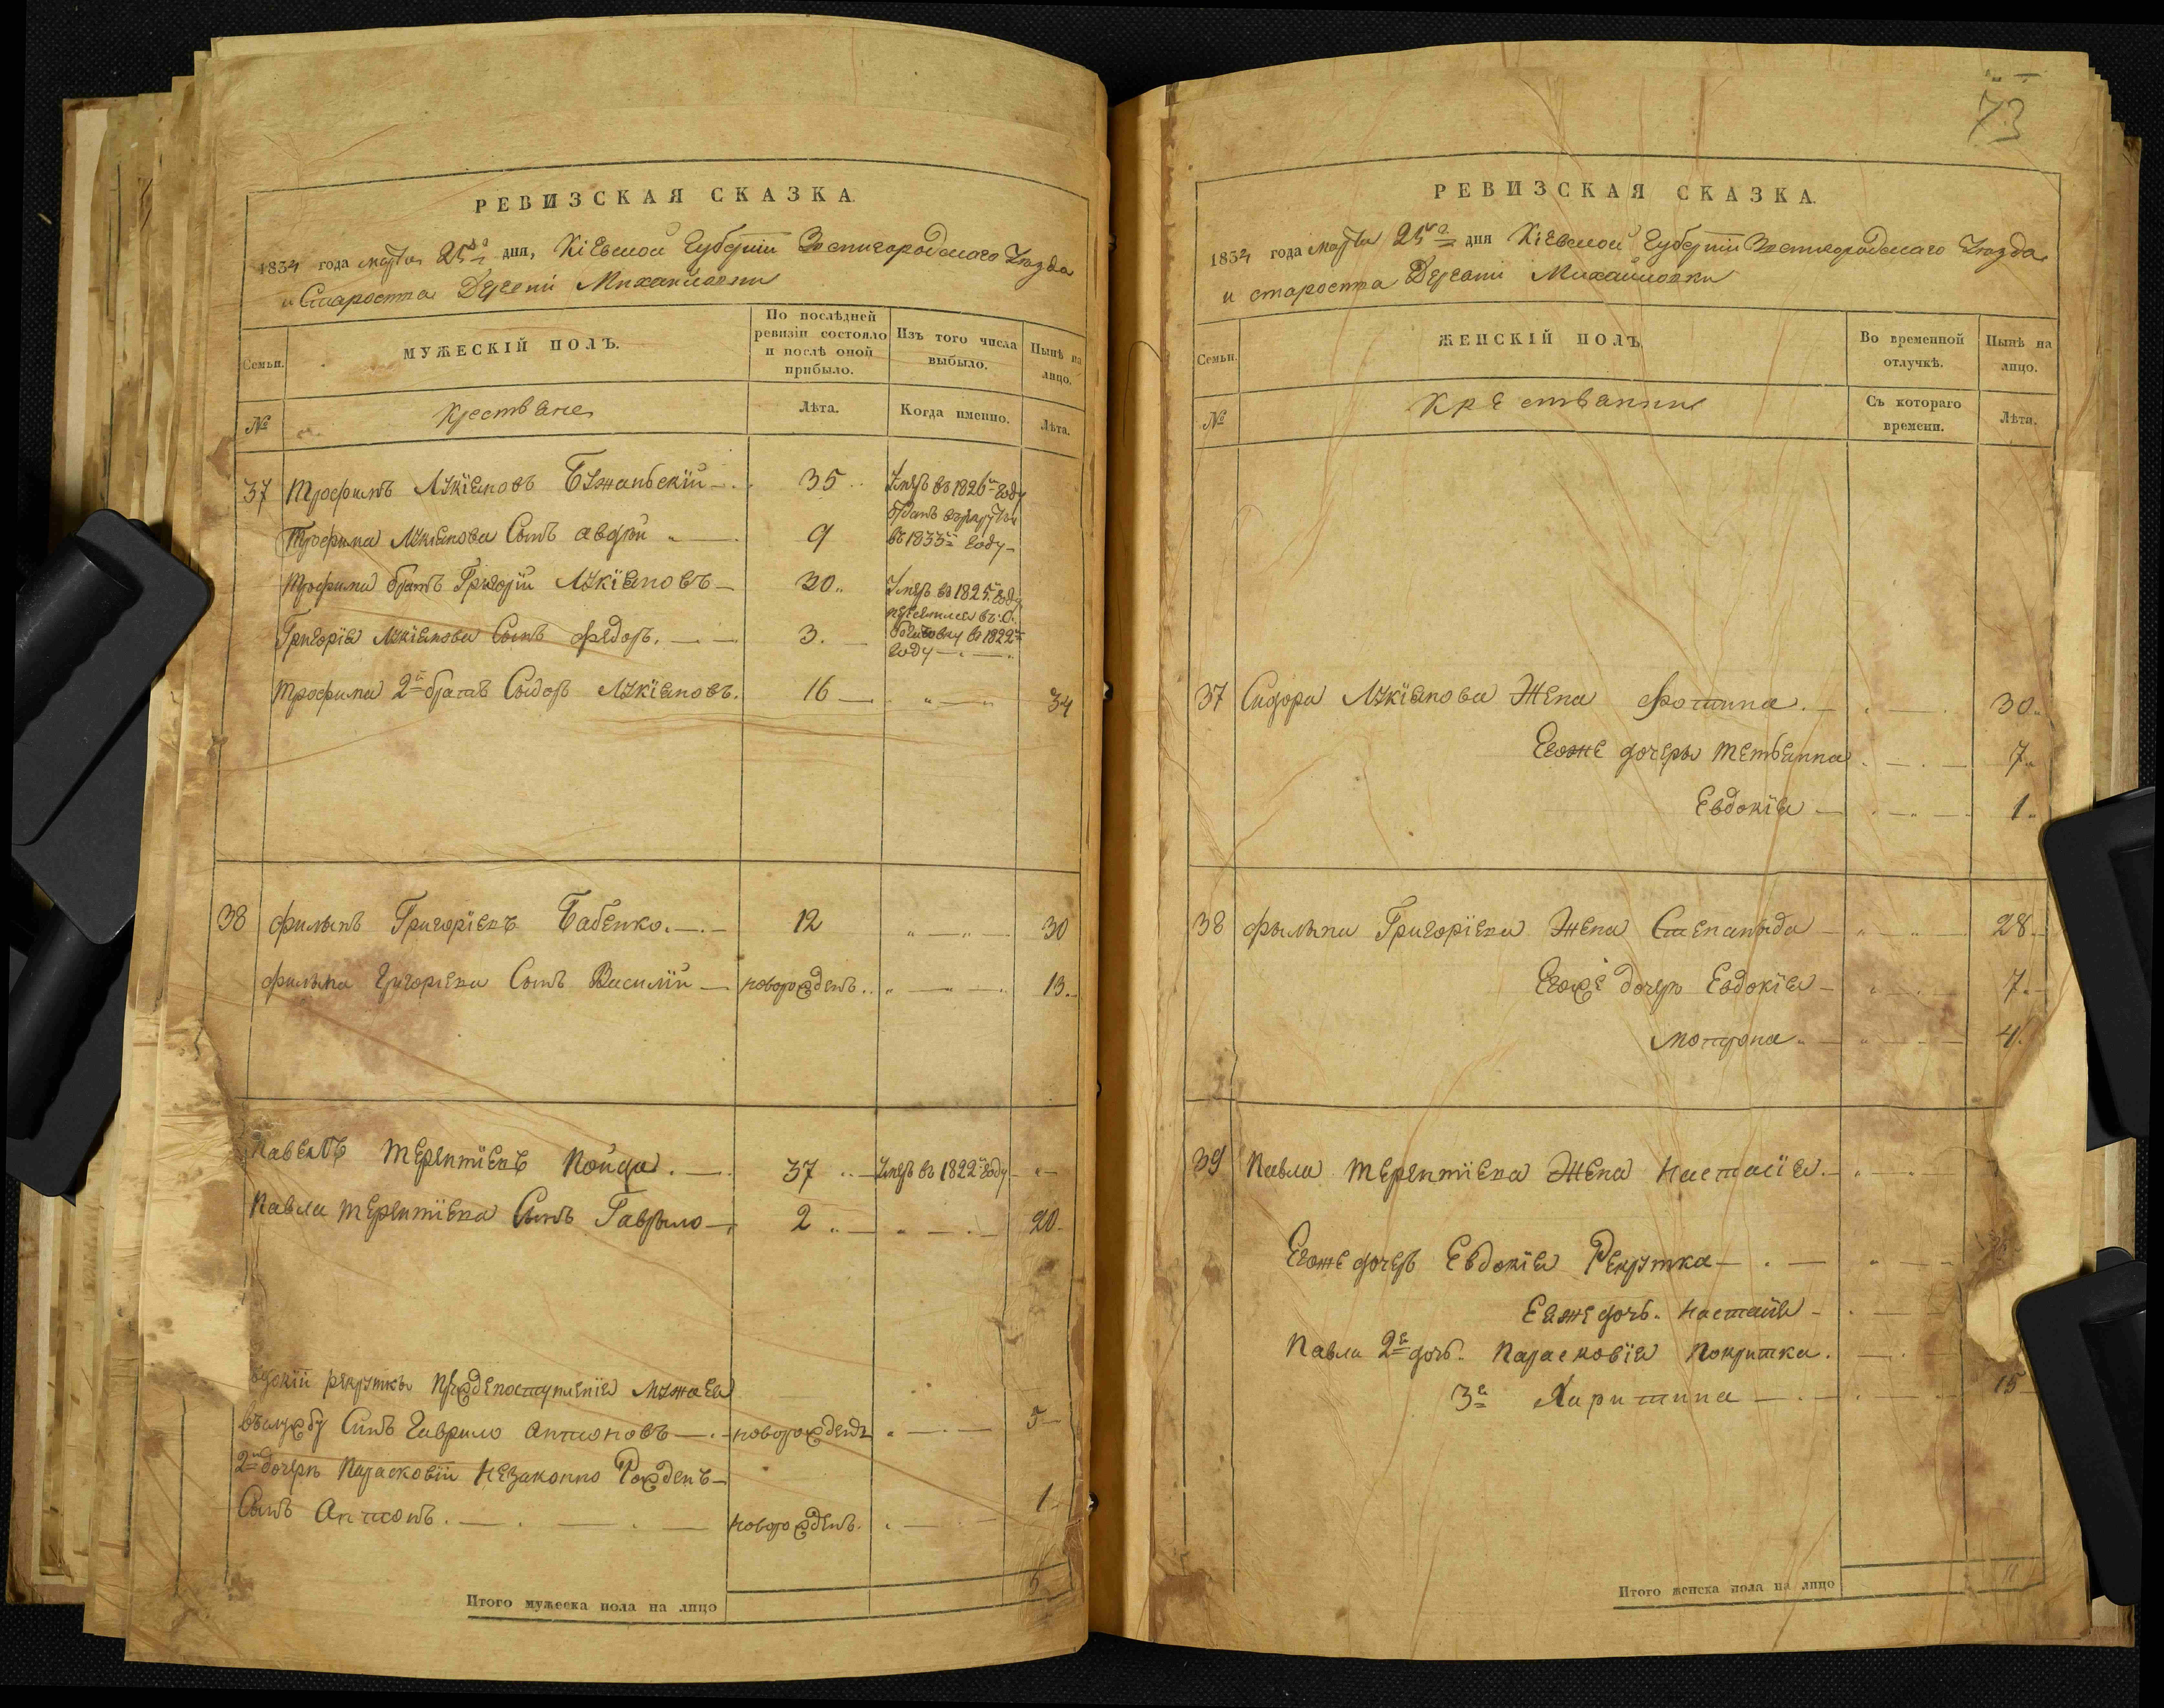 РЕВИЗСКАЯ СКАЗКА.
1834 года марта 25го дня, Кіевской Губерніи Звенигородскаго Уезда
и Староства Деревни Михайловки
Семьи.
МУЖЕСКІЙ ПОЛЪ.
По послѣдней ревизіи состояло и послѣ оной прибыло.
Изъ того числа выбыло.
Нынѣ на лицо.
№
Крестьяне
Лѣта.
Когда именно.
Лѣта.
37 Трофимъ Лукіановъ 35 Умеръ въ 1826м Году
Трофима Лукіанова Сынъ 9 Отданъ в рекруты въ 1833м Году
Трофима братъ Григорій Лукіановъ 30 Умеръ въ 1825 Году
Григорія Лукіанова Сынъ Федоръ 3. въ 1822м Году
Трофима 2й братъ Сыдоръ Лукіановъ. 16 34
38 Филыпъ Григоріевъ Бабенко 12 30
Филыпа Григоріева Сынъ Василій новорожденъ 13
Павелъ Терентіевъ Пойда 37 Умеръ въ 1822м Году
Павла Терентіева Сынъ Гаврыло 2 20
рекрутки мужа Ея
въ службу Сынъ Гаврило Антоновъ новорожденъ 5
2й дочери Параскевіи незаконно Рожденъ
Сынъ Антонъ. новорожденъ. 1
Итого мужеска пола на лицо 6
73
РЕВИЗСКАЯ СКАЗКА.
1834 года марта 25го дня Кіевской Губерніи Звенигородскаго Уезда
и староства Деревни Михайловки
Семьи.
ЖЕНСКІЙ ПОЛЪ.
Во временной отлучкѣ.
Нынѣ на лицо.
№
Крествянки
Съ котораго времени.
Лѣта.
37 Сидора Лукіанова Жена Фотина 30
Егоже дочеры Тетьянна 7
Евдокія 1
38 Филыпа Григоріева Жена Степаныда 28
Егоже дочери Евдокія 7
Мотрона 4
39 Павла Терентіева Жена Настасія
Егоже дочеръ Евдокія Рекрутка
Еяже дочь. Настасія
Павла 2я дочь. Парасковія Покритка.
3я Харитина 15
Итого женска пола на лицо